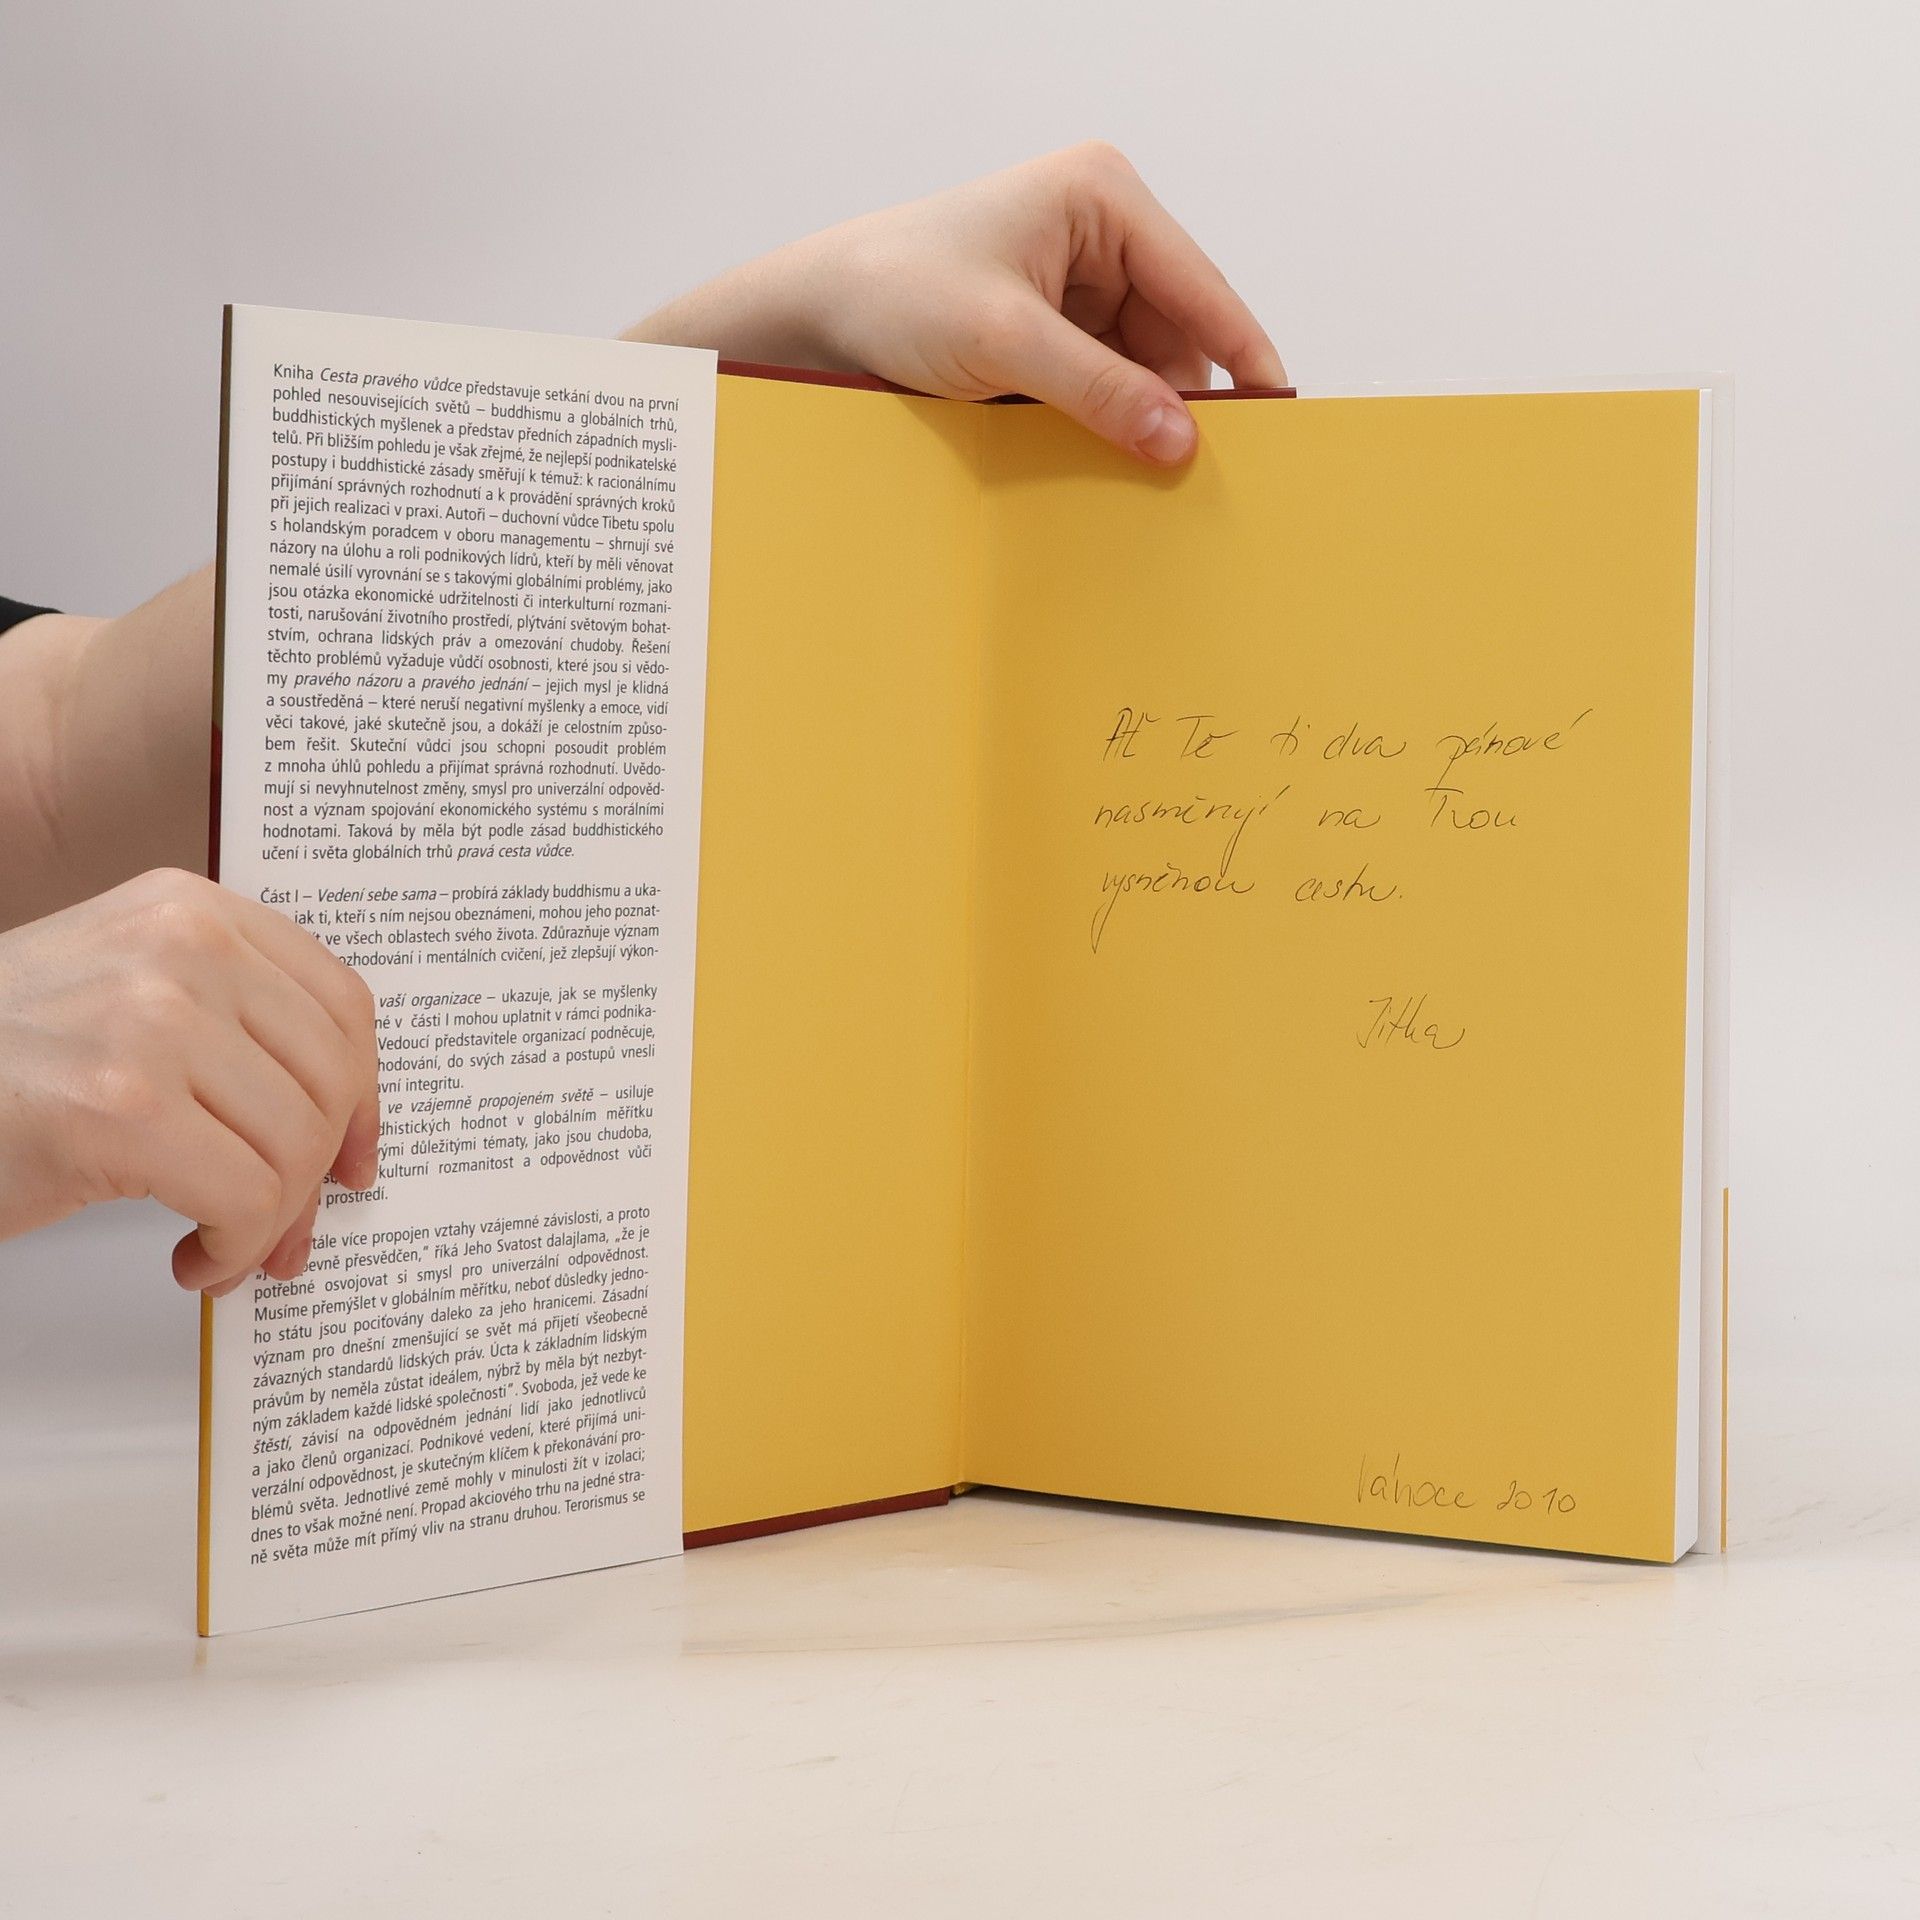 Kniha Cesta pravého vůdce představuje setkání dvou na první
pohled nesouvisejících světů – buddhismu a globálních trhů,
buddhistických myšlenek a představ předních západních mysli-
telů. Při bližším pohledu je však zřejmé, že nejlepší podnikatelské
postupy i buddhistické zásady směřují k témuž: k racionálnímu
přijímání správných rozhodnutí a k provádění správných kroků
při jejich realizaci v praxi. Autoři – duchovní vůdce Tibetu spolu
s holandským poradcem v oboru managementu – shrnují své
názory na úlohu a roli podnikových lídrů, kteří by měli věnovat
nemalé úsilí vyrovnání se s takovými globálními problémy, jako
jsou otázka ekonomické udržitelnosti či interkulturní rozmani-
tosti, narušování životního prostředí, plýtvání světovým bohat-
stvím, ochrana lidských práv a omezování chudoby. Řešení
těchto problémů vyžaduje vůdčí osobnosti, které jsou si vědo-
my pravého názoru a pravého jednání – jejich mysl je klidná
a soustředěná – které neruší negativní myšlenky a emoce, vidí
věci takové, jaké skutečně jsou, a dokáží je celostním způso-
bem řešit. Skuteční vůdci jsou schopni posoudit problém
z mnoha úhlů pohledu a přijímat správná rozhodnutí. Uvědo-
mují si nevyhnutelnost změny, smysl pro univerzální odpověd-
nost a význam spojování ekonomického systému s morálními
hodnotami. Taková by měla být podle zásad buddhistického
učení i světa globálních trhů pravá cesta vůdce.
Část I – Vedení sebe sama – probírá základy buddhismu a uka-
jak ti, kteří s ním nejsou obeznámeni, mohou jeho poznat-
ve všech oblastech svého života. Zdůrazňuje význam
ozhodování i mentálních cvičení, jež zlepšují výkon-
vaší organizace – ukazuje, jak se myšlenky
né v části I mohou uplatnit v rámci podnika-
Vedoucí představitele organizací podněcuje,
hodování, do svých zásad a postupů vnesli
avní integritu.
ve vzájemně propojeném světě – usiluje
dhistických hodnot v globálním měřítku
vými důležitými tématy, jako jsou chudoba,
kulturní rozmanitost a odpovědnost vůči
prostředí.
tále více propojen vztahy vzájemné závislosti, a proto
evně přesvědčen,“ říká Jeho Svatost dalajlama, „že je
potřebné osvojovat si smysl pro univerzální odpovědnost.
Musíme přemýšlet v globálním měřítku, neboť důsledky jedno-
ho státu jsou pociťovány daleko za jeho hranicemi. Zásadní
význam pro dnešní zmenšující se svět má přijetí všeobecně
závazných standardů lidských práv. Úcta k základním lidským
právům by neměla zůstat ideálem, nýbrž by měla být nezbyt-
ným základem každé lidské společnosti“. Svoboda, jež vede ke
štěstí, závisí na odpovědném jednání lidí jako jednotlivců
a jako členů organizací. Podnikové vedení, které přijímá uni-
verzální odpovědnost, je skutečným klíčem k překonávání pro-
blémů světa. Jednotlivé země mohly v minulosti žít v izolaci;
dnes to však možné není. Propad akciového trhu na jedné stra-
ně světa může mít přímý vliv na stranu druhou. Terorismus se
Ať Tě ti dva pánové
nasměrují na Tvou
vysněnou cestu.
Jitka
Vánoce 2010